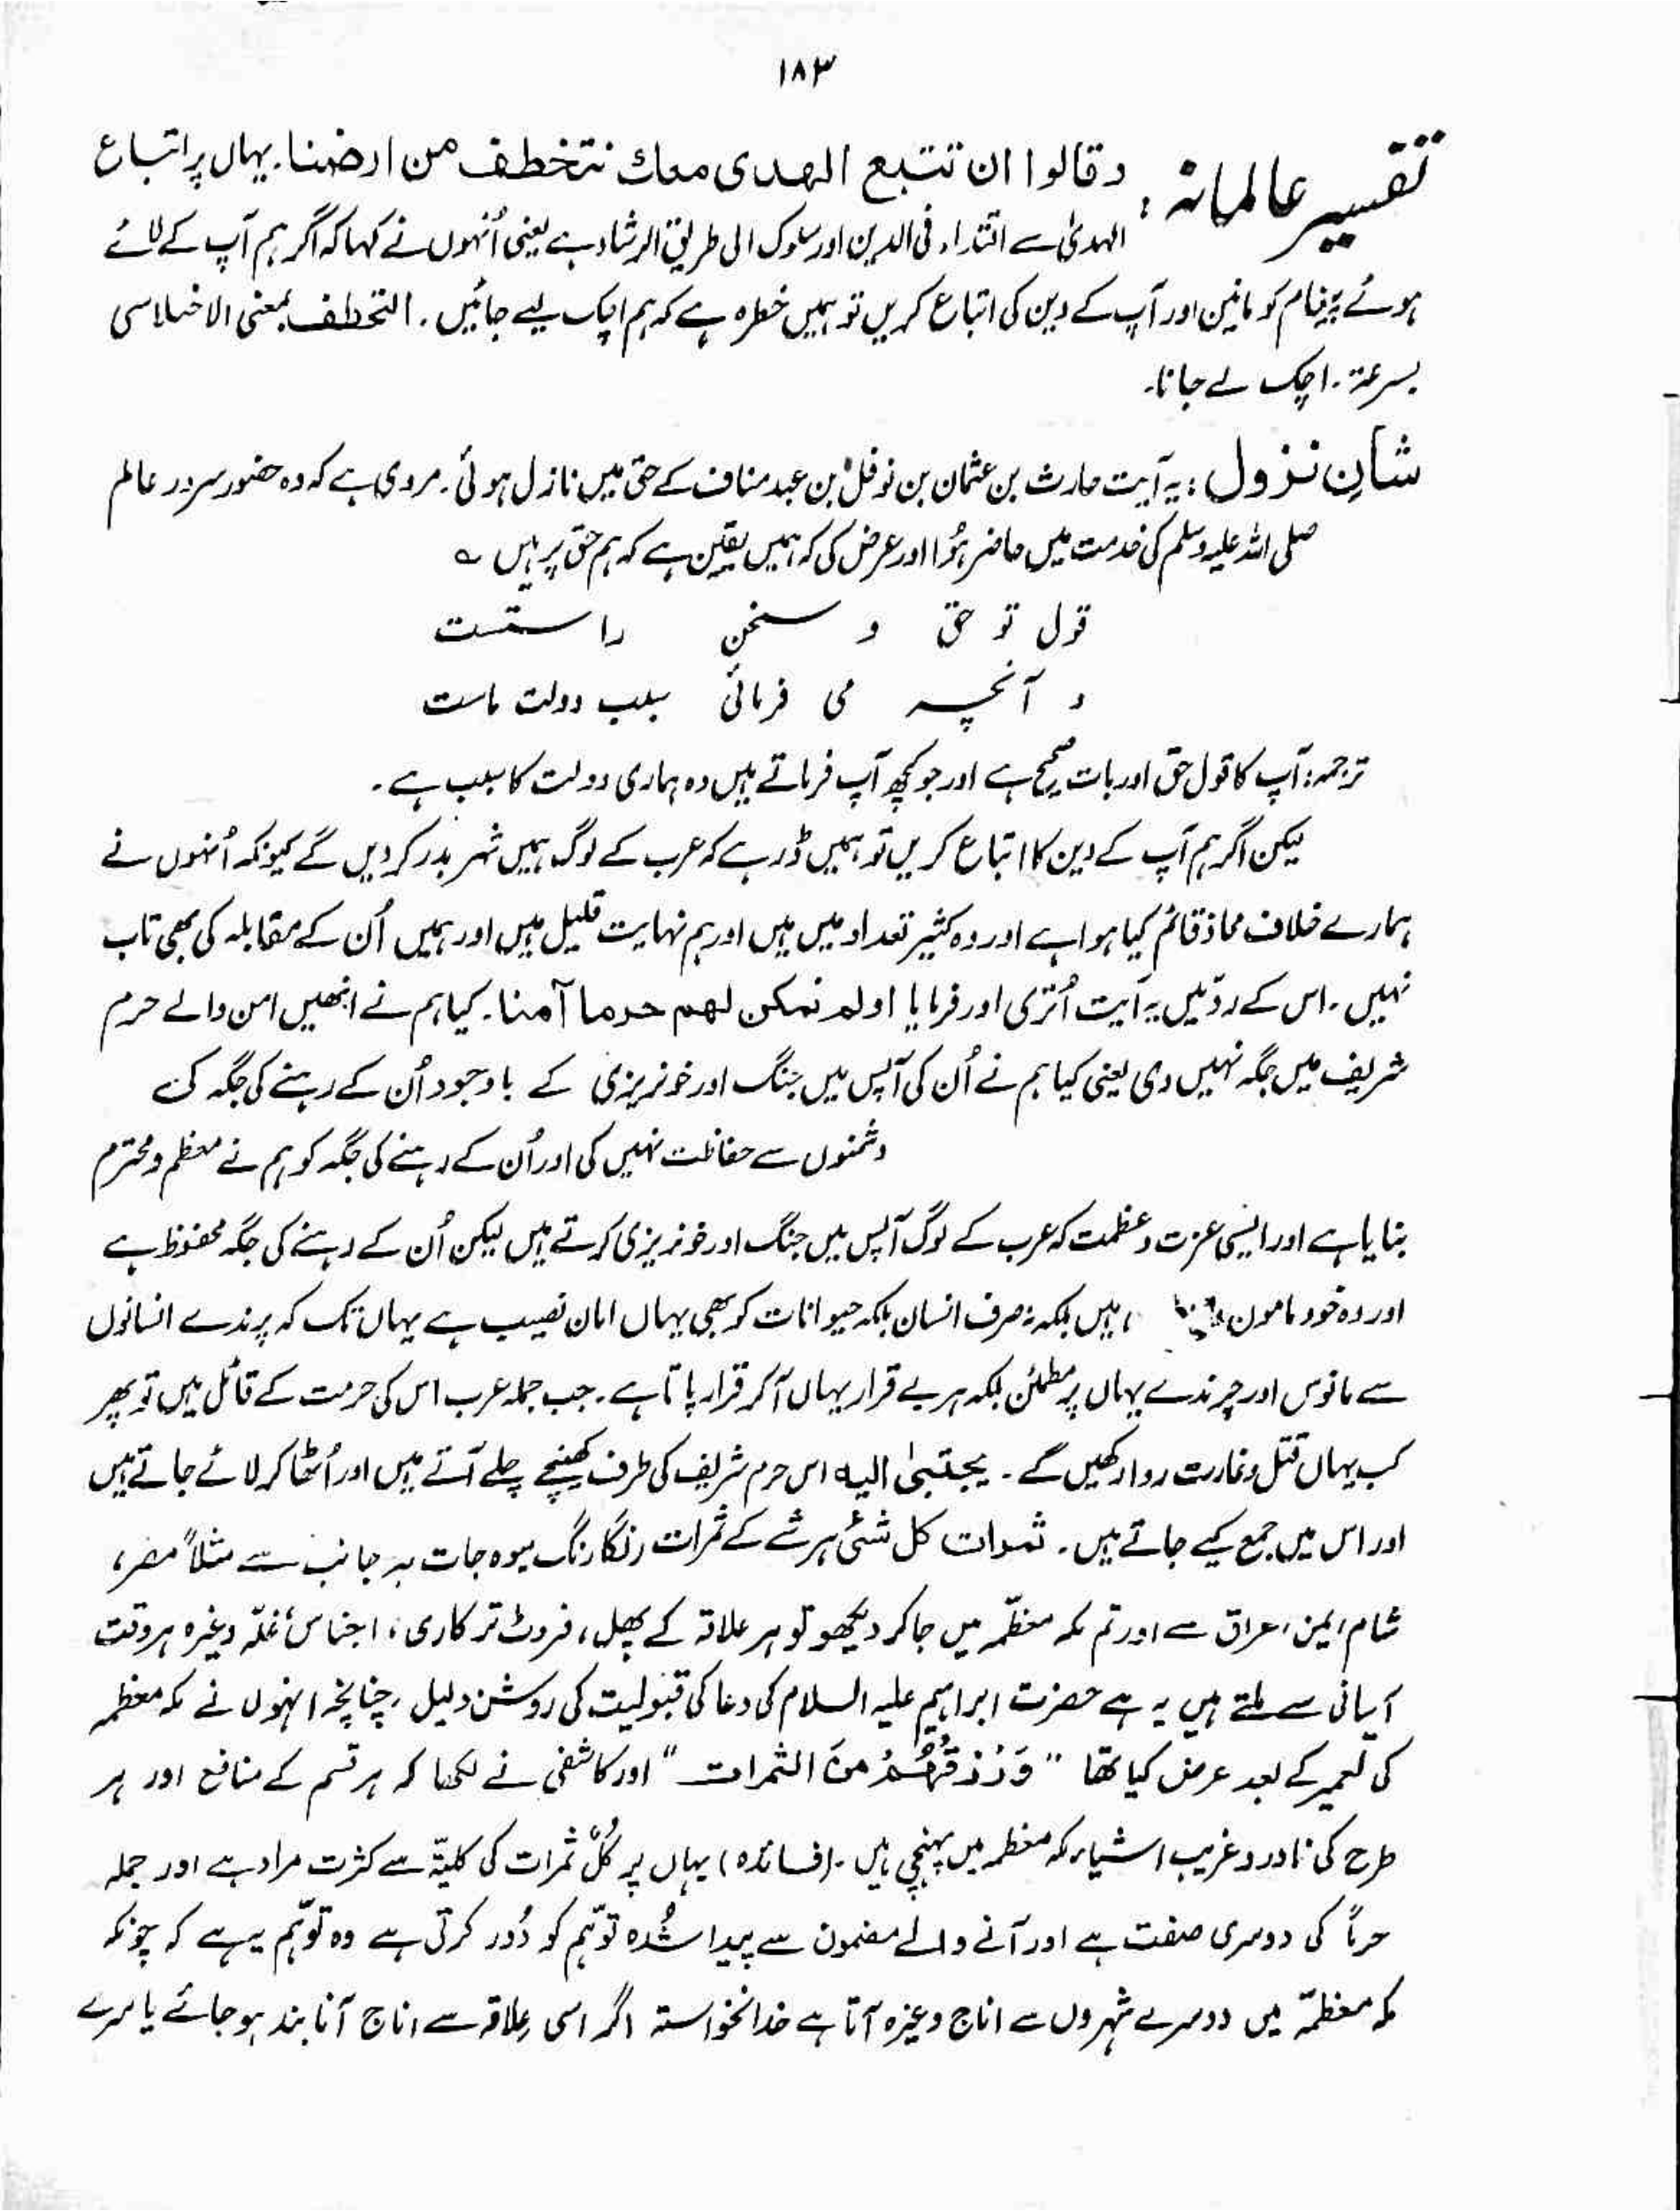 ۱۸۳
تفسیر عالمانہ : وقالوا ان نتبع الھدی معك نتخطف من ارضنا۔ یہاں پر اتباع
الہدیٰ سے اقتداء فی الدین اور سلوک الی طریق الرشاد ہے یعنی اُنہوں نے کہا کہ اگر ہم آپ کے لائے
ہوئے پیغام کو مانیں اور آپ کے دین کی اتباع کریں تو ہمیں خطرہ ہے کہ ہم اچک لیے جائیں۔ التخطف بمعنی الاختلاسی
بسرعۃ۔ اچک لے جانا۔
شانِ نزول : یہ آیت حارث بن عثمان بن نوفل بن عبد مناف کے حق میں نازل ہوئی۔ مروی ہے کہ وہ حضور سرور عالم
صلی اللہ علیہ وسلم کی خدمت میں حاضر ہُوا اور عرض کی کہ ہمیں یقین ہے کہ ہم حق پر ہیں ؎
قول تو حق و سخن راستست
و آنچہ می فرمائی سبب دولت ماست
ترجمہ: آپ کا قول حق اور بات صحیح ہے اور جو کچھ آپ فرماتے ہیں وہ ہماری دولت کا سبب ہے۔
لیکن اگر ہم آپ کے دین کا اتباع کریں تو ہمیں ڈر ہے کہ عرب کے لوگ ہمیں شہر بدر کردیں گے کیونکہ اُنہوں نے
ہمارے خلاف محاذ قائم کیا ہوا ہے اور وہ کثیر تعداد میں ہیں اور ہم نہایت قلیل ہیں اور ہمیں اُن کے مقابلہ کی بھی تاب
نہیں۔ اس کے ردّ میں یہ آیت اُتری اور فرمایا اولم نمکن لھم حرما آمنا۔ کیا ہم نے انھیں امن والے حرم
شریف میں جگہ نہیں دی یعنی کیا ہم نے اُن کی آپس میں جنگ اور خونریزی کے باوجود اُن کے رہنے کی جگہ کی
دشمنوں سے حفاظت نہیں کی اور اُن کے رہنے کی جگہ کو ہم نے معظم و محترم
بنایا ہے اور ایسی عزت و عظمت کہ عرب کے لوگ آپس میں جنگ اور خونریزی کرتے ہیں لیکن اُن کے رہنے کی جگہ محفوظ ہے
اور وہ خود مامون ہیں بلکہ نہ صرف انسان بلکہ حیوانات کو بھی یہاں امان نصیب ہے یہاں تک کہ پرندے انسانوں
سے مانوس اور چرندے یہاں پر مطمئن بلکہ ہر بے قرار یہاں آ کر قرار پاتا ہے۔ جب جملہ عرب اس کی حرمت کے قائل ہیں تو پھر
کب یہاں قتل و غارت روا رکھیں گے۔ یجتبیٰ الیہ اس حرم شریف کی طرف کھینچے چلے آتے ہیں اور اُٹھا کر لائے جاتے ہیں
اور اس میں جمع کیے جاتے ہیں۔ ثمرات کل شئی ہر شے کے ثمرات رنگا رنگ میوہ جات ہر جانب سے مثلاً مصر،
شام، یمن، عراق سے اور تم مکہ معظّمہ میں جا کر دیکھو تو ہر علاقہ کے پھل، فروٹ ترکاری، اجناس غلّہ وغیرہ ہر وقت
آسانی سے ملتے ہیں یہ ہے حضرت ابراہیم علیہ السلام کی دعا کی قبولیت کی روشن دلیل، چنانچہ انہوں نے مکہ معظمہ
کی تعمیر کے بعد عرض کیا تھا " وَرْزُقْهُمْ مِنَ الثمرات " اور کاشفی نے لکھا کہ ہر قسم کے منافع اور ہر
طرح کی نادر و غریب اشیاء مکہ معظمہ میں پہنچی ہیں۔ (فـائدہ) یہاں پر کُلِّ ثمرات کی کلیّہ سے کثرت مراد ہے اور جملہ
حرماً کی دوسری صفت ہے اور آنے والے مضمون سے پیدا شُدہ توہّم کو دُور کرتی ہے وہ توہّم یہ ہے کہ چونکہ
مکہ معظمّہ میں دوسرے شہروں سے اناج وغیرہ آتا ہے خدانخواستہ اگر اسی علاقہ سے اناج آنا بند ہو جائے یا سرے